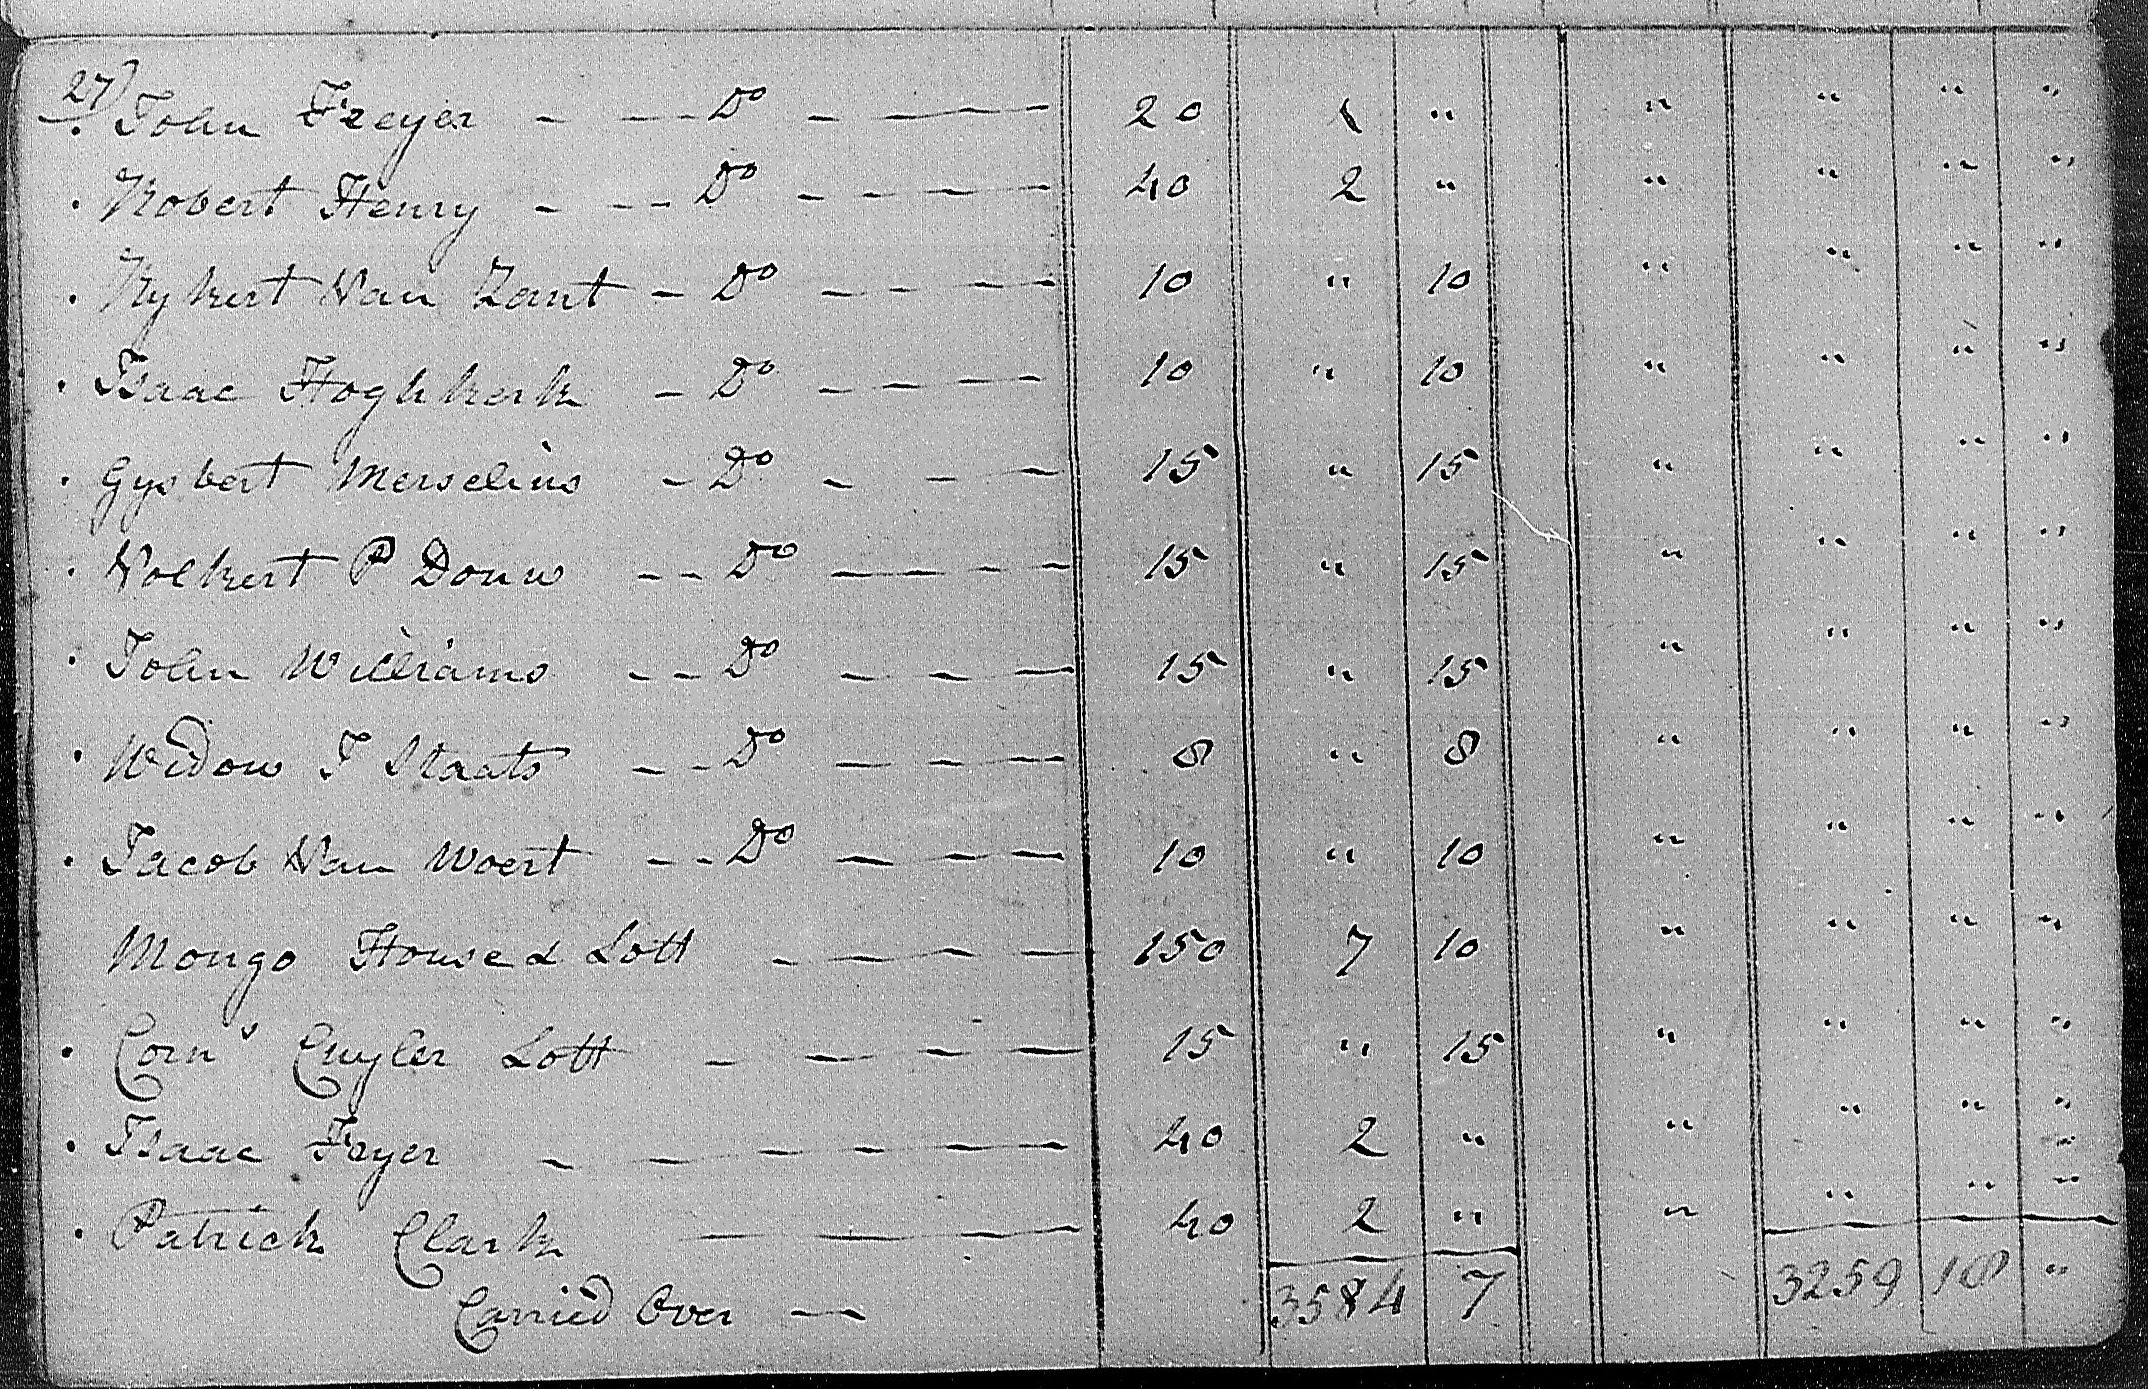 27) John Freyer - - - - Do - - - 20 1 " " " " "
Robert Henry - - - - Do - - - - 40 2 " " " " "
Nykert Van Zant - Do - - - - 10 " 10 " " " "
Isaac Hoghkerk - Do - - - - 10 " 10 " " " "
Gysbert Merselius - Do - - - 15 " 15 " " " "
Volkert P Douw - - Do - - - - 15 " 15 " " " "
John Williams - - Do - - - 15 " 15 " " " "
Widow J Staats - - Do - - - 8 " 8 " " " "
Jacob Van Woert - - Do - - - 10 " 10 " " " "
Mongo House & Lott - - - - 150 7 10 " " " "
Corns Cuyler Lott - - - - 15 " 15 " " " "
Isaac Fryer - - - - - 40 2 " " " " "
Patrick Clark - - - - 40 2 " " " " "
Carried Over - 3584 7 3259 18 "